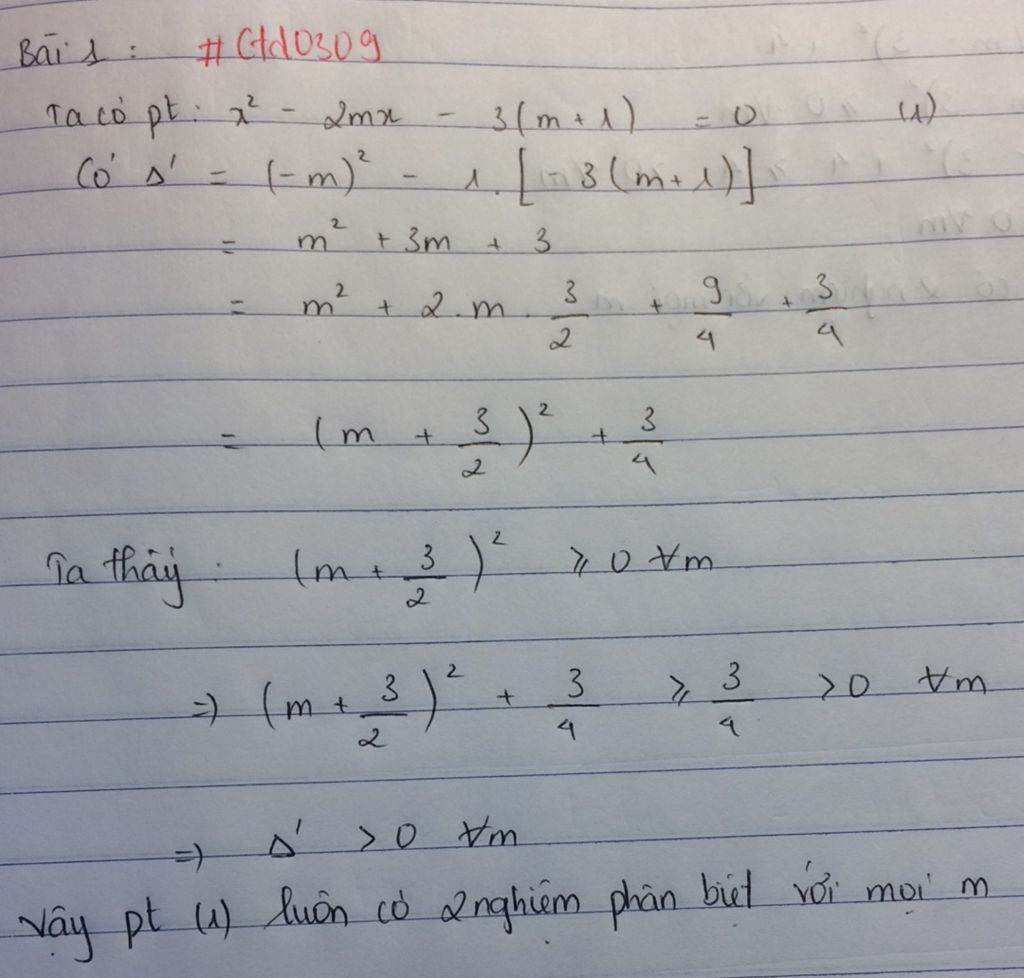 Bài 1 : #Ctd0309
Ta có pt : x² - 2mx - 3(m + 1) = 0 (1)
Có Δ' = (-m)² - 1. [-3(m+1)]
= m² + 3m + 3
= m² + 2.m. 3/2 + 9/4 + 3/4
= (m + 3/2)² + 3/4
Ta thấy : (m + 3/2)² ⩾ 0 ∀m
=> (m + 3/2)² + 3/4 ⩾ 3/4 > 0 ∀m
=> Δ' > 0 ∀m
Vậy pt (1) luôn có 2 nghiệm phân biệt với mọi m